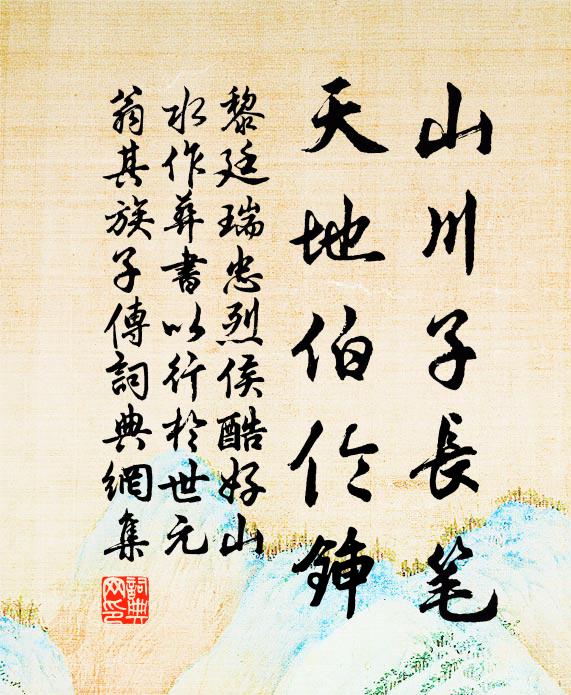 山川子長笔
天地伯伦锸
黎廷瑞忠烈侯酷好山
水作葬書以行於世元
翁其族子傳詞典網集
詞典網印